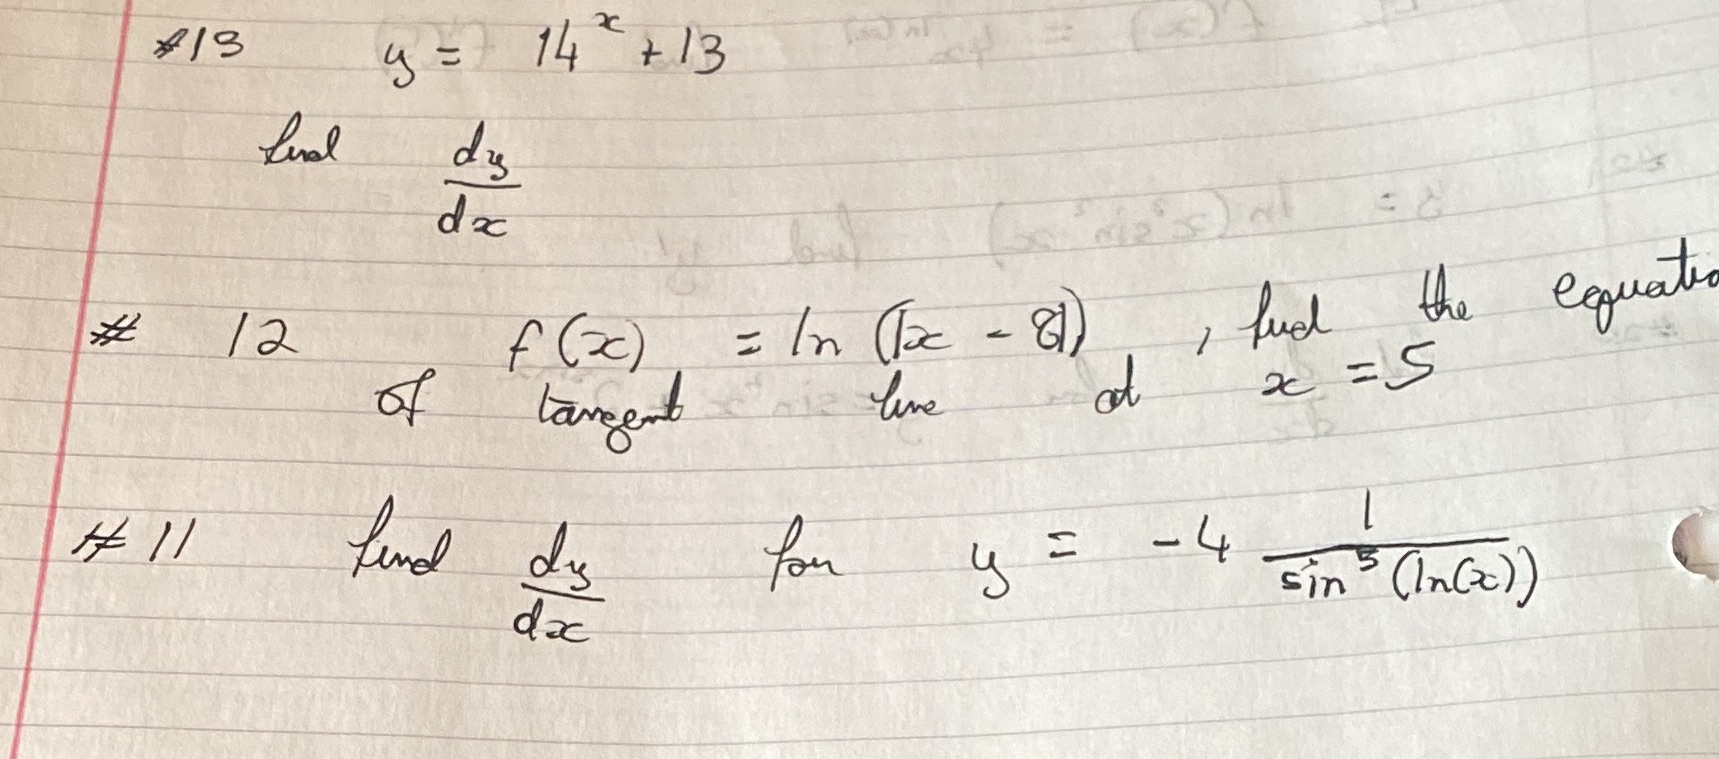 #13 y = 14^x + 13
find dy/dx
# 12 f(x) = ln(|x - 8|) , find the equatio
of tangent line at x = 5
#11 find dy/dx for y = -4 1/sin^5(ln(x))